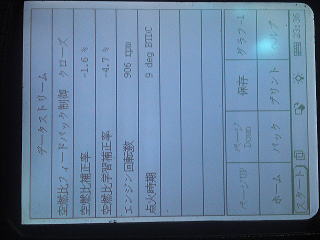 データストリーム
空燃比フィードバック制御 クローズ
空燃比補正率 -1.6 %
空燃比学習補正率 -4.7 %
エンジン回転数 906 rpm
点火時期 9 deg BTDC
ページUP ページDown 保存 グラフ-1
ホーム バック プリント ヘルプ
スタート 23:36